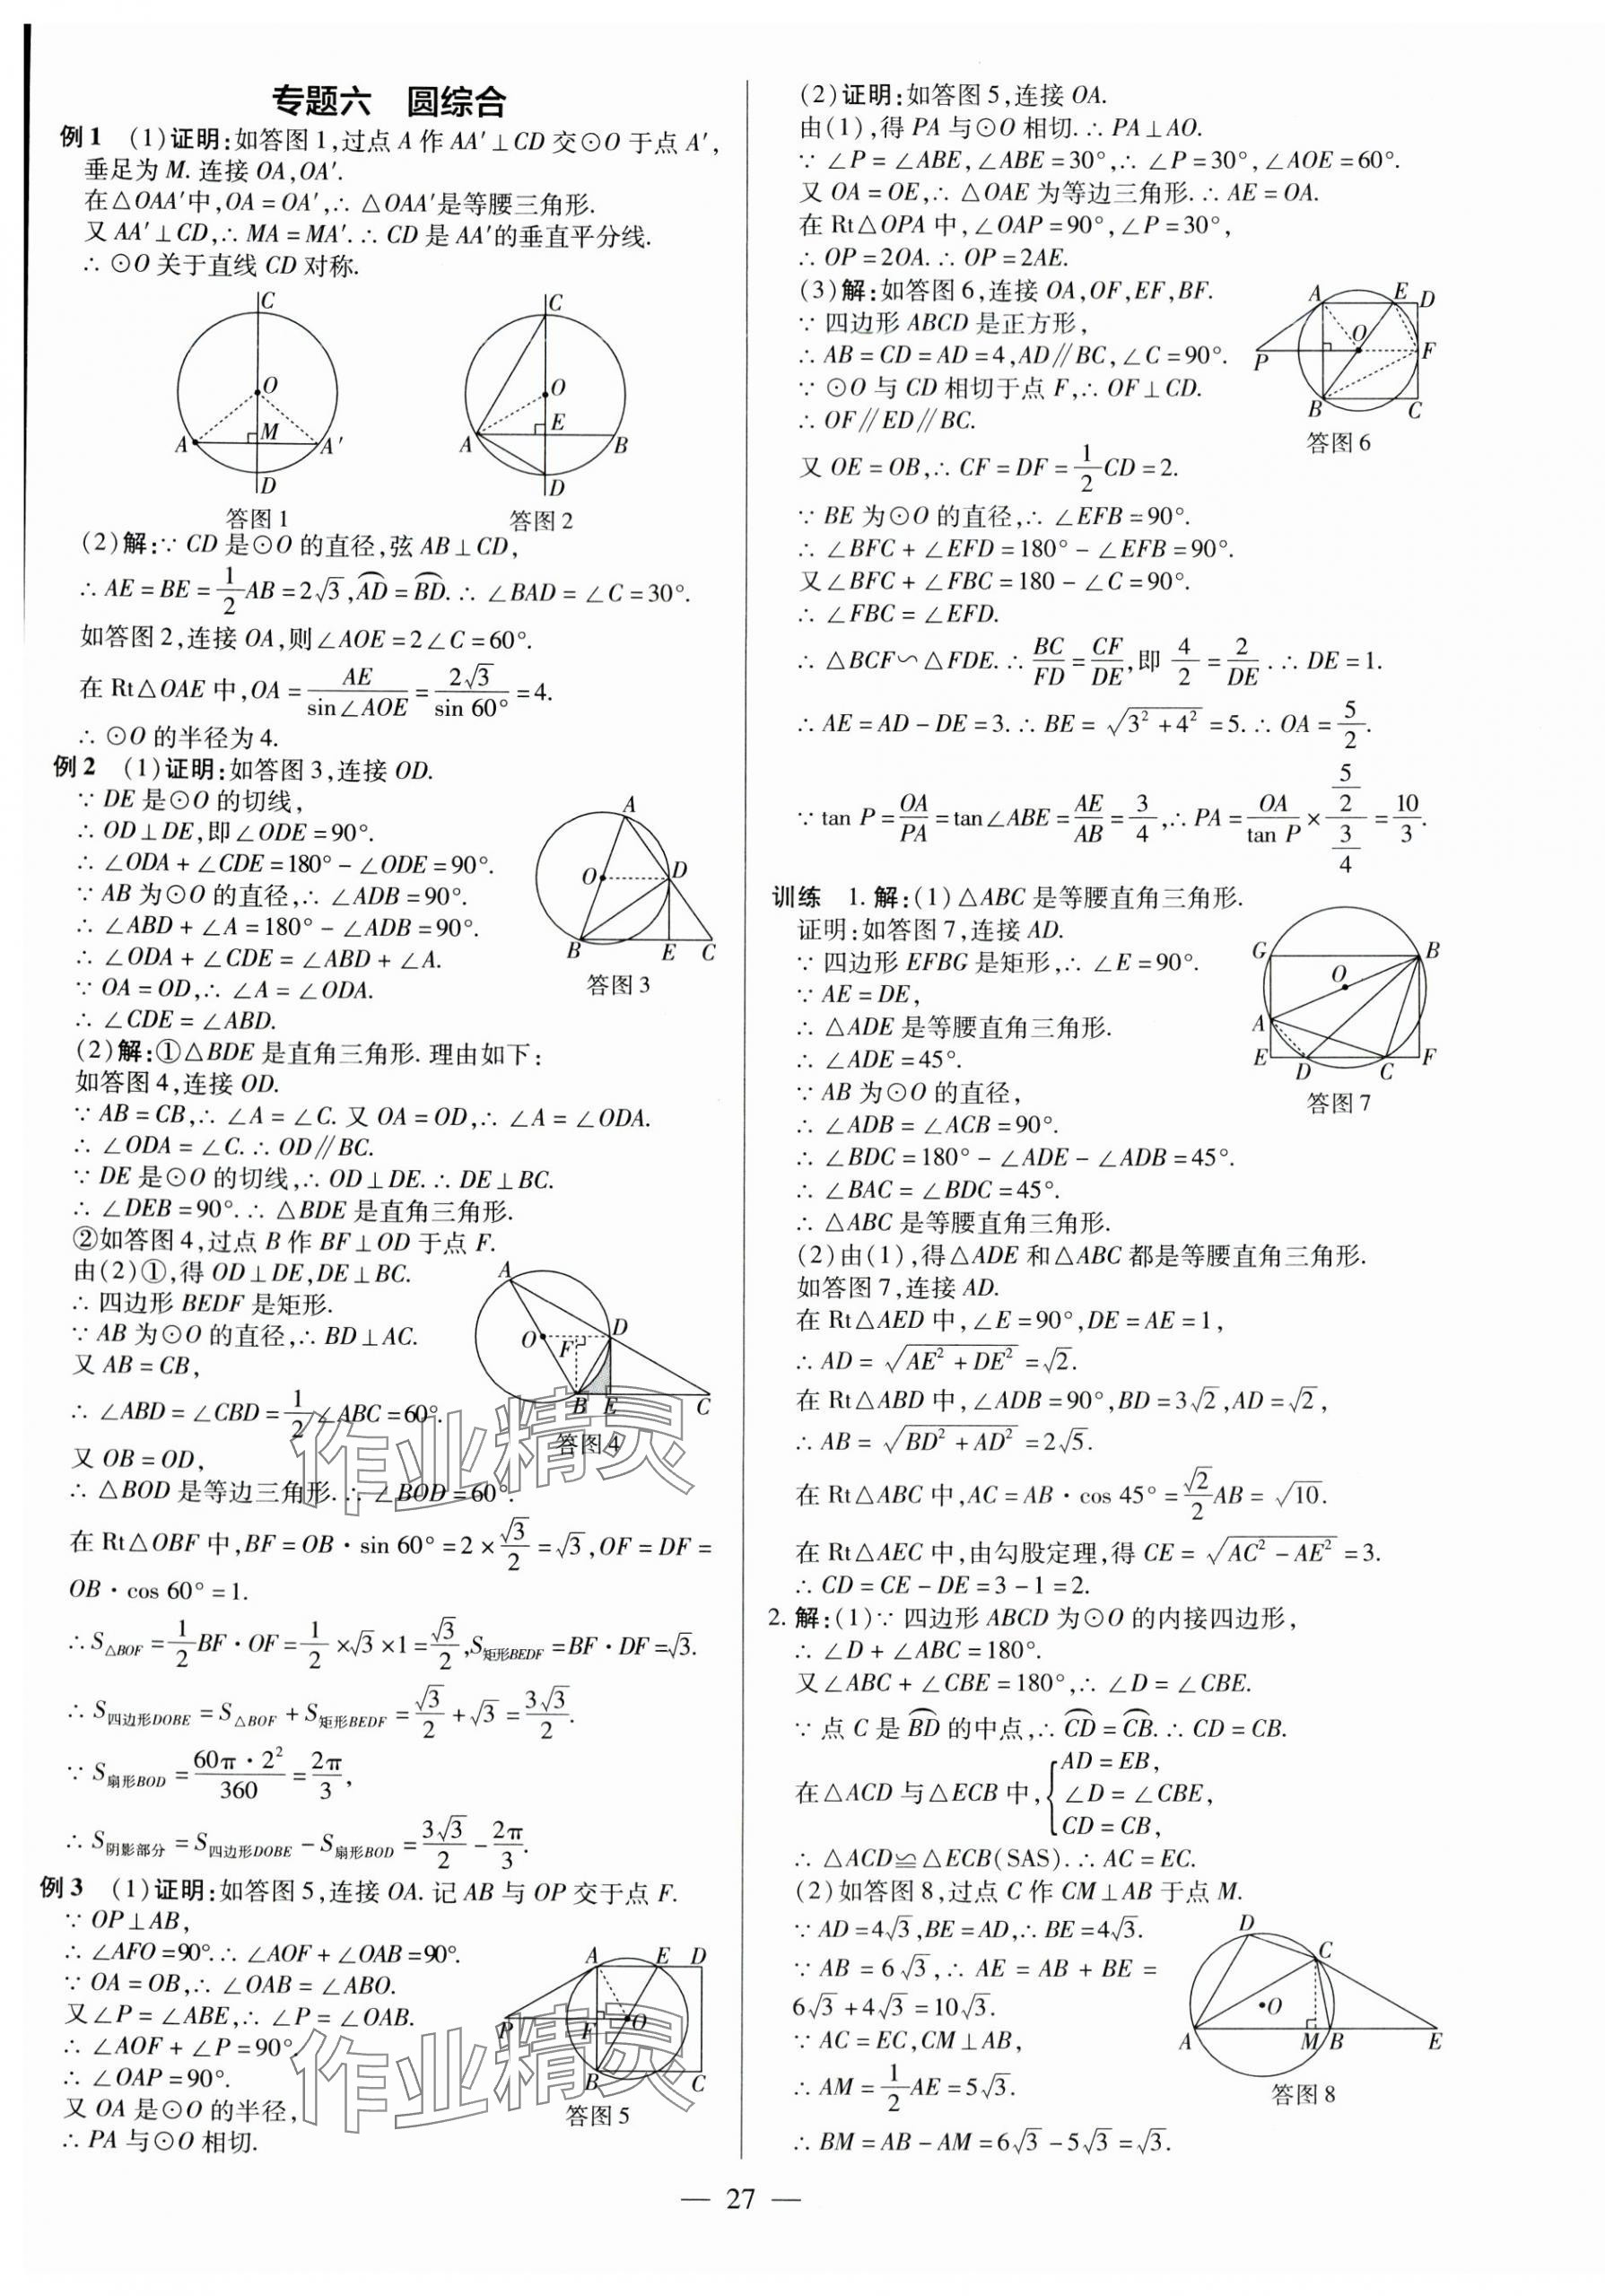 专题六　圆综合
例1　(1)证明:如答图1,过点A作AA′⊥CD交⊙O于点A′,
垂足为M.连接OA,OA′.
在△OAA′中,OA=OA′,∴△OAA′是等腰三角形.
又AA′⊥CD,∴MA=MA′.∴CD是AA′的垂直平分线.
∴⊙O关于直线CD对称.
C
O
A
M
A′
D
答图1
C
O
E
A
B
D
答图2
(2)解:∵CD是⊙O的直径,弦AB⊥CD,
∴AE=BE=1/2AB=2√3,A͡D=B͡D.∴∠BAD=∠C=30°.
如答图2,连接OA,则∠AOE=2∠C=60°.
在Rt△OAE中,OA=AE/sin∠AOE=2√3/sin 60°=4.
∴⊙O的半径为4.
例2　(1)证明:如答图3,连接OD.
∵DE是⊙O的切线,
∴OD⊥DE,即∠ODE=90°.
∴∠ODA+∠CDE=180°-∠ODE=90°.
∵AB为⊙O的直径,∴∠ADB=90°.
∴∠ABD+∠A=180°-∠ADB=90°.
∴∠ODA+∠CDE=∠ABD+∠A.
∵OA=OD,∴∠A=∠ODA.
∴∠CDE=∠ABD.
A
O
D
B
E
C
答图3
(2)解:①△BDE是直角三角形.理由如下:
如答图4,连接OD.
∵AB=CB,∴∠A=∠C.又OA=OD,∴∠A=∠ODA.
∴∠ODA=∠C.∴OD∥BC.
∵DE是⊙O的切线,∴OD⊥DE.∴DE⊥BC.
∴∠DEB=90°.∴△BDE是直角三角形.
②如答图4,过点B作BF⊥OD于点F.
由(2)①,得OD⊥DE,DE⊥BC.
∴四边形BEDF是矩形.
∵AB为⊙O的直径,∴BD⊥AC.
又AB=CB,
∴∠ABD=∠CBD=1/2∠ABC=60°.
又OB=OD,
∴△BOD是等边三角形.∴∠BOD=60°.
A
O
F
D
B
E
C
答图4
在Rt△OBF中,BF=OB·sin 60°=2×√3/2=√3,OF=DF=
OB·cos 60°=1.
∴S△BOF=1/2BF·OF=1/2×√3×1=√3/2,S矩形BEDF=BF·DF=√3.
∴S四边形DOBE=S△BOF+S矩形BEDF=√3/2+√3=3√3/2.
∵S扇形BOD=60π·2²/360=2π/3,
∴S阴影部分=S四边形DOBE-S扇形BOD=3√3/2-2π/3.
例3　(1)证明:如答图5,连接OA.记AB与OP交于点F.
∵OP⊥AB,
∴∠AFO=90°.∴∠AOF+∠OAB=90°.
∵OA=OB,∴∠OAB=∠ABO.
又∠P=∠ABE,∴∠P=∠OAB.
∴∠AOF+∠P=90°.
∴∠OAP=90°.
又OA是⊙O的半径,
∴PA与⊙O相切.
A
E
D
P
F
O
B
C
答图5
(2)证明:如答图5,连接OA.
由(1),得PA与⊙O相切.∴PA⊥AO.
∵∠P=∠ABE,∠ABE=30°,∴∠P=30°,∠AOE=60°.
又OA=OE,∴△OAE为等边三角形.∴AE=OA.
在Rt△OPA中,∠OAP=90°,∠P=30°,
∴OP=2OA.∴OP=2AE.
(3)解:如答图6,连接OA,OF,EF,BF.
∵四边形ABCD是正方形,
∴AB=CD=AD=4,AD∥BC,∠C=90°.
∵⊙O与CD相切于点F,∴OF⊥CD.
∴OF∥ED∥BC.
又OE=OB,∴CF=DF=1/2CD=2.
A
E
D
O
P
F
B
C
答图6
∵BE为⊙O的直径,∴∠EFB=90°.
∴∠BFC+∠EFD=180°-∠EFB=90°.
又∠BFC+∠FBC=180-∠C=90°.
∴∠FBC=∠EFD.
∴△BCF∽△FDE.∴BC/FD=CF/DE,即4/2=2/DE.∴DE=1.
∴AE=AD-DE=3.∴BE=√(3²+4²)=5.∴OA=5/2.
∵tan P=OA/PA=tan∠ABE=AE/AB=3/4,∴PA=OA/tan P×(5/2)/(3/4)=10/3.
训练　1.解:(1)△ABC是等腰直角三角形.
证明:如答图7,连接AD.
∵四边形EFBG是矩形,∴∠E=90°.
∵AE=DE,
∴△ADE是等腰直角三角形.
∴∠ADE=45°.
∵AB为⊙O的直径,
∴∠ADB=∠ACB=90°.
∴∠BDC=180°-∠ADE-∠ADB=45°.
∴∠BAC=∠BDC=45°.
∴△ABC是等腰直角三角形.
G
B
O
A
E
D
C
F
答图7
(2)由(1),得△ADE和△ABC都是等腰直角三角形.
如答图7,连接AD.
在Rt△AED中,∠E=90°,DE=AE=1,
∴AD=√(AE²+DE²)=√2.
在Rt△ABD中,∠ADB=90°,BD=3√2,AD=√2,
∴AB=√(BD²+AD²)=2√5.
在Rt△ABC中,AC=AB·cos 45°=√2/2AB=√10.
在Rt△AEC中,由勾股定理,得CE=√(AC²-AE²)=3.
∴CD=CE-DE=3-1=2.
2.解:(1)∵四边形ABCD为⊙O的内接四边形,
∴∠D+∠ABC=180°.
又∠ABC+∠CBE=180°,∴∠D=∠CBE.
∵点C是B͡D的中点,∴C͡D=C͡B.∴CD=CB.
在△ACD与△ECB中,{AD=EB,
∠D=∠CBE,
CD=CB,
∴△ACD≌△ECB(SAS).∴AC=EC.
(2)如答图8,过点C作CM⊥AB于点M.
∵AD=4√3,BE=AD,∴BE=4√3.
∵AB=6√3,∴AE=AB+BE=
6√3+4√3=10√3.
∵AC=EC,CM⊥AB,
∴AM=1/2AE=5√3.
∴BM=AB-AM=6√3-5√3=√3.
D
C
O
A
M
B
E
答图8
— 27 —
作业精灵
作业精灵